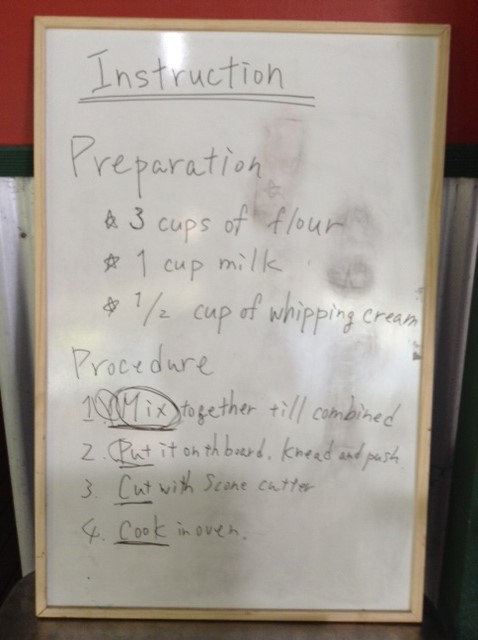 Instruction
Preparation
☆ 3 cups of flour
☆ 1 cup milk
☆ 1/2 cup of whipping cream
Procedure
1. Mix together till combined
2. Put it on th board. Knead and push
3. Cut with Scone cutter
4. Cook in oven.